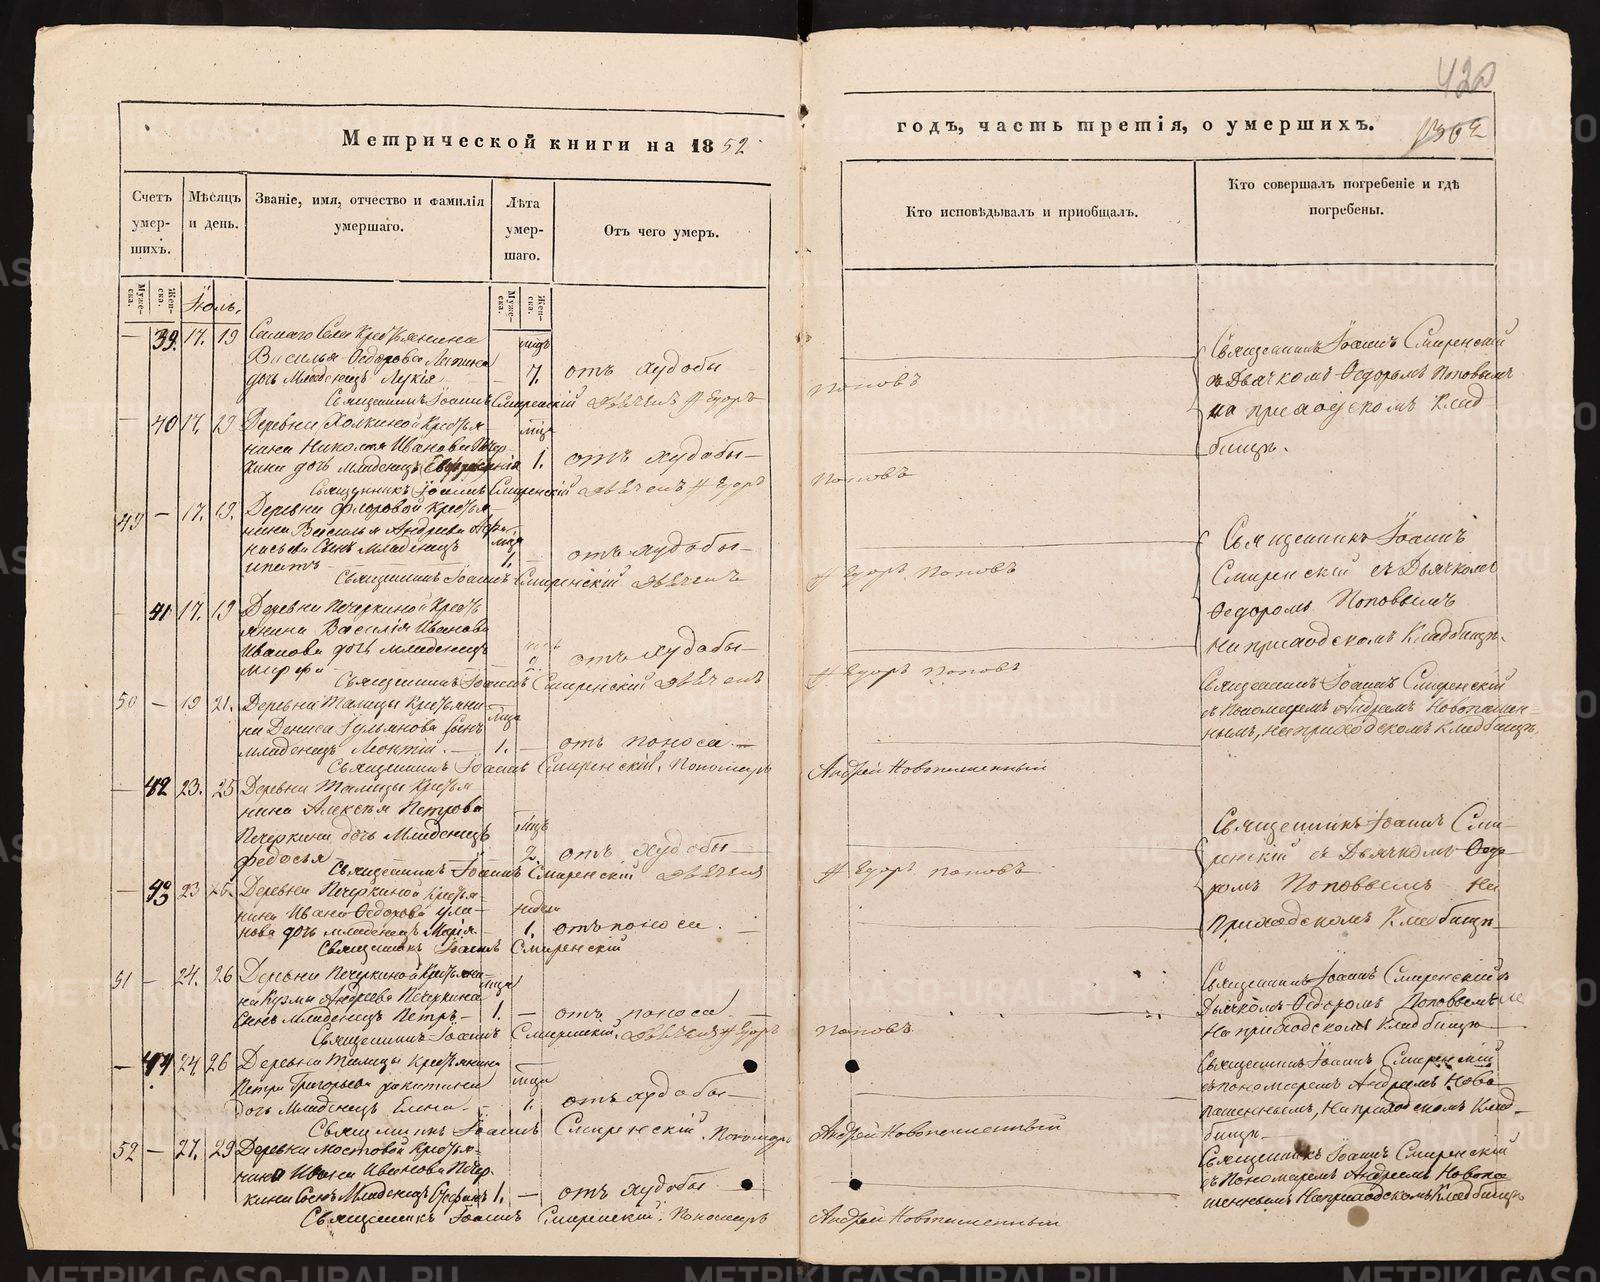 420
Метрической книги на 1852
годъ, часть третія, о умершихъ.
Счетъ умер-шихъ.
Мѣсяцъ и день.
Званіе, имя, отчество и фамилія умершаго.
Лѣта умер-шаго.
Отъ чего умеръ.
Кто исповѣдывалъ и пріобщалъ.
Кто совершалъ погребеніе и гдѣ погребены.
Муже-ска.
Жен-ска.
Муже-ска.
Жен-ска.
Іюль.
— 39. 17. 19 Самаго Села Крестьянина
Василья Ѳедорова
дочь Младенецъ Лукія
7. отъ худобы
Священникъ Іоаннъ Смиренскій Дьячекъ Егоръ
Поповъ
Священникъ Іоаннъ Смиренскій
съ Дьячкомъ Ѳедоромъ Поповымъ
на приходскомъ Клад
бищѣ.
— 40 17. 19 Деревни Холкиной Крестья
нина Николая Иванова Печер
кина дочь младенецъ
1. отъ худобы
Священникъ Іоаннъ Смиренскій Дьячекъ Егоръ
Поповъ
49 — 17. 19. Деревни Фроловой Крестья
нина Василья Андреева Аѳа
насьева Сынъ Младенецъ
Ипатъ
1. отъ худобы
Священникъ Іоаннъ Смиренскій Дьячекъ
Егоръ Поповъ
Священникъ Іоаннъ
Смиренскій съ Дьячкомъ
Ѳедоромъ Поповымъ
на приходскомъ Кладбищѣ.
— 41 17. 19 Деревни Печеркиной Кресть
янина Василія Иванова
Иванова дочь младенецъ
Марѳа
отъ худобы
Священникъ Іоаннъ Смиренскій Дьячекъ
Егоръ Поповъ
50 — 19 21. Деревни Талицы Крестьяни
на Дениса Сынъ
младенецъ Леонтій
1. — отъ поноса
Священникъ Іоаннъ Смиренскій. Пономарь
Андрей Новопашенный
Священникъ Іоаннъ Смиренскій
съ Пономаремъ Андреемъ Новопашен-
нымъ, на приходскомъ Кладбищѣ.
— 42 23. 25 Деревни Талицы Крестья
нина Алексѣя Петрова
Печеркина дочь Младенецъ
Ѳедосья
2. отъ худобы
Священникъ Іоаннъ Смиренскій Дьячекъ
Егоръ Поповъ
Священникъ Іоаннъ Сми-
ренскій съ Дьячкомъ Ѳедо
ромъ Поповымъ на
приходскомъ Кладбищѣ
— 43 23 25. Деревни Печеркиной Крестья
нина Ивана Ѳедорова Улья
нова дочь младенецъ Марія
недели
1. отъ поноса.
Священникъ Іоаннъ Смиренскій
51 — 24. 26 Деревни Печеркиной Крестьяни
на Кузмы Андреева Печеркина
Сынъ Младенецъ Петръ
1. — отъ поноса
Священникъ Іоаннъ Смиренскій. Дьячекъ Егоръ
Поповъ
Священникъ Іоаннъ Смиренскій съ
Дьячкомъ Ѳедоромъ Поповымъ
на приходскомъ Кладбищѣ
— 44 24. 26 Деревни Талицы Крестьянина
Петра Григорьева Ракитина
дочь Младенецъ Елена
1. отъ худобы
Священникъ Іоаннъ Смиренскій. Пономарь
Андрей Новопашенный
Священникъ Іоаннъ Смиренскій
съ пономаремъ Андреемъ Ново
пашеннымъ, на приходскомъ Клад-
бищѣ
52 — 27. 29 Деревни Мостовой Крестья
нина Ивана Иванова Печер
кина Сынъ Младенецъ Стефанъ
1. — отъ худобы
Священникъ Іоаннъ Смиренскій. Пономарь
Андрей Новопашенный
Священникъ Іоаннъ Смиренскій
съ Пономаремъ Андреемъ Новопа
шеннымъ на приходскомъ Кладбищѣ
METRIKI.GASO-URAL.RU